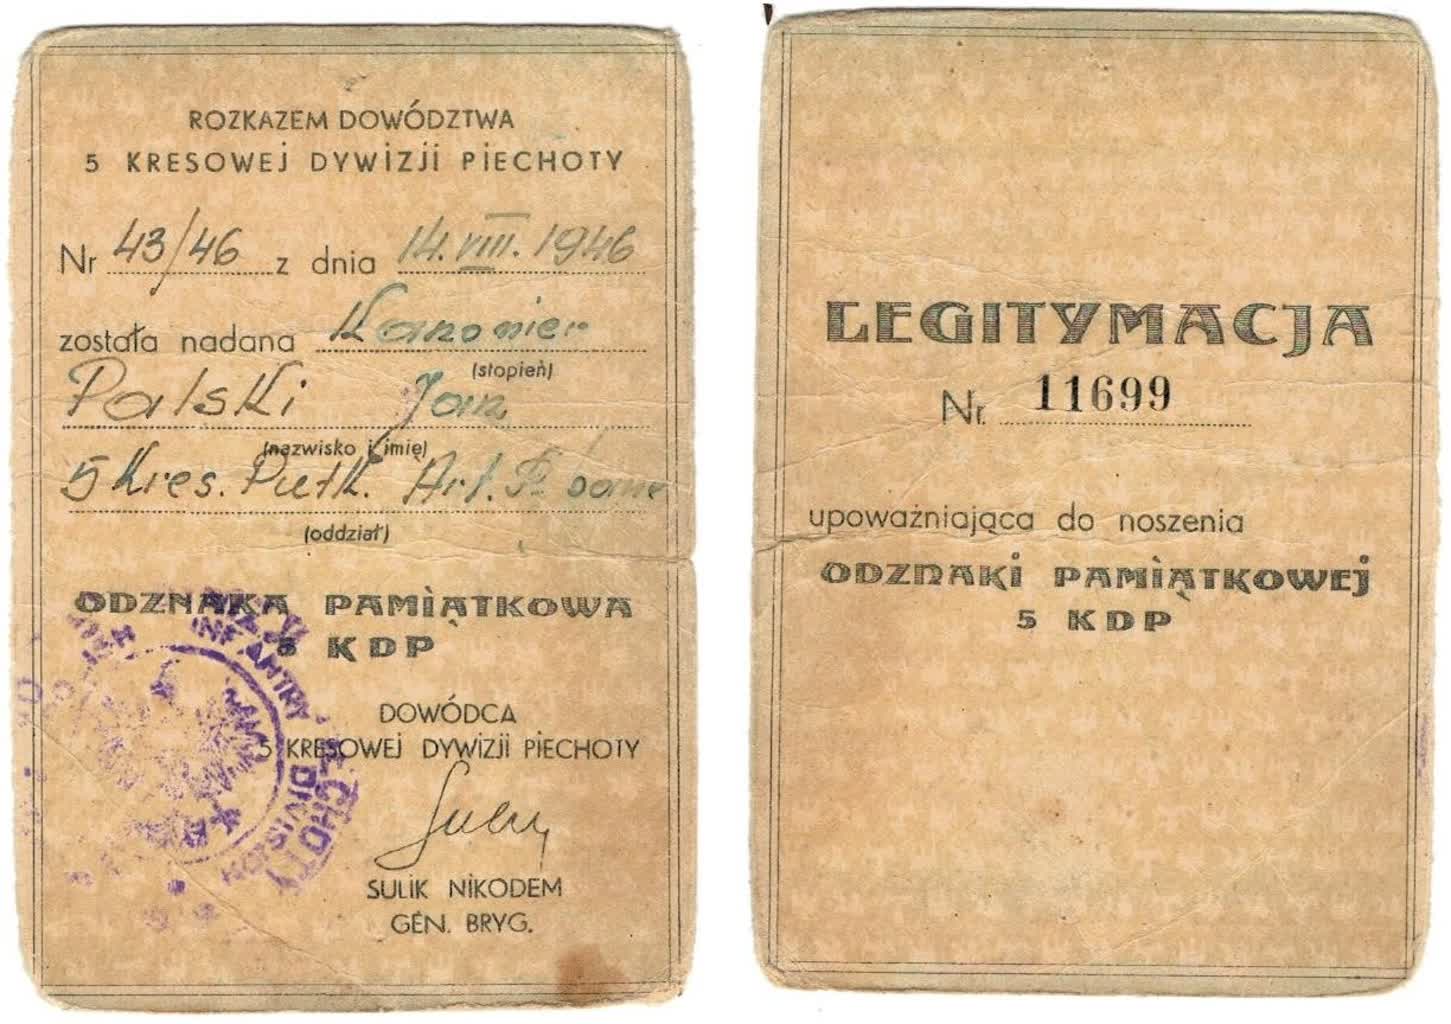 ROZKAZEM DOWÓDZTWA
5 KRESOWEJ DYWIZJI PIECHOTY
Nr 43/46 z dnia 14.VIII.1946
została nadana Kanonier
(stopień)
Palski Jan
(nazwisko i imię)
5 Kres. Pułk. Art.
(oddział)
ODZNAKA PAMIĄTKOWA
5 KDP
INFANTRY DIVISION
DOWÓDCA
5 KRESOWEJ DYWIZJI PIECHOTY
SULIK NIKODEM
GEN. BRYG.
LEGITYMACJA
Nr. 11699
upoważniająca do noszenia
ODZNAKI PAMIĄTKOWEJ
5 KDP